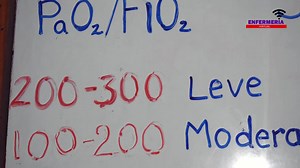 PaO₂/FIO₂
ENFERMERÍA
200-300 Leve
100-200 Modera